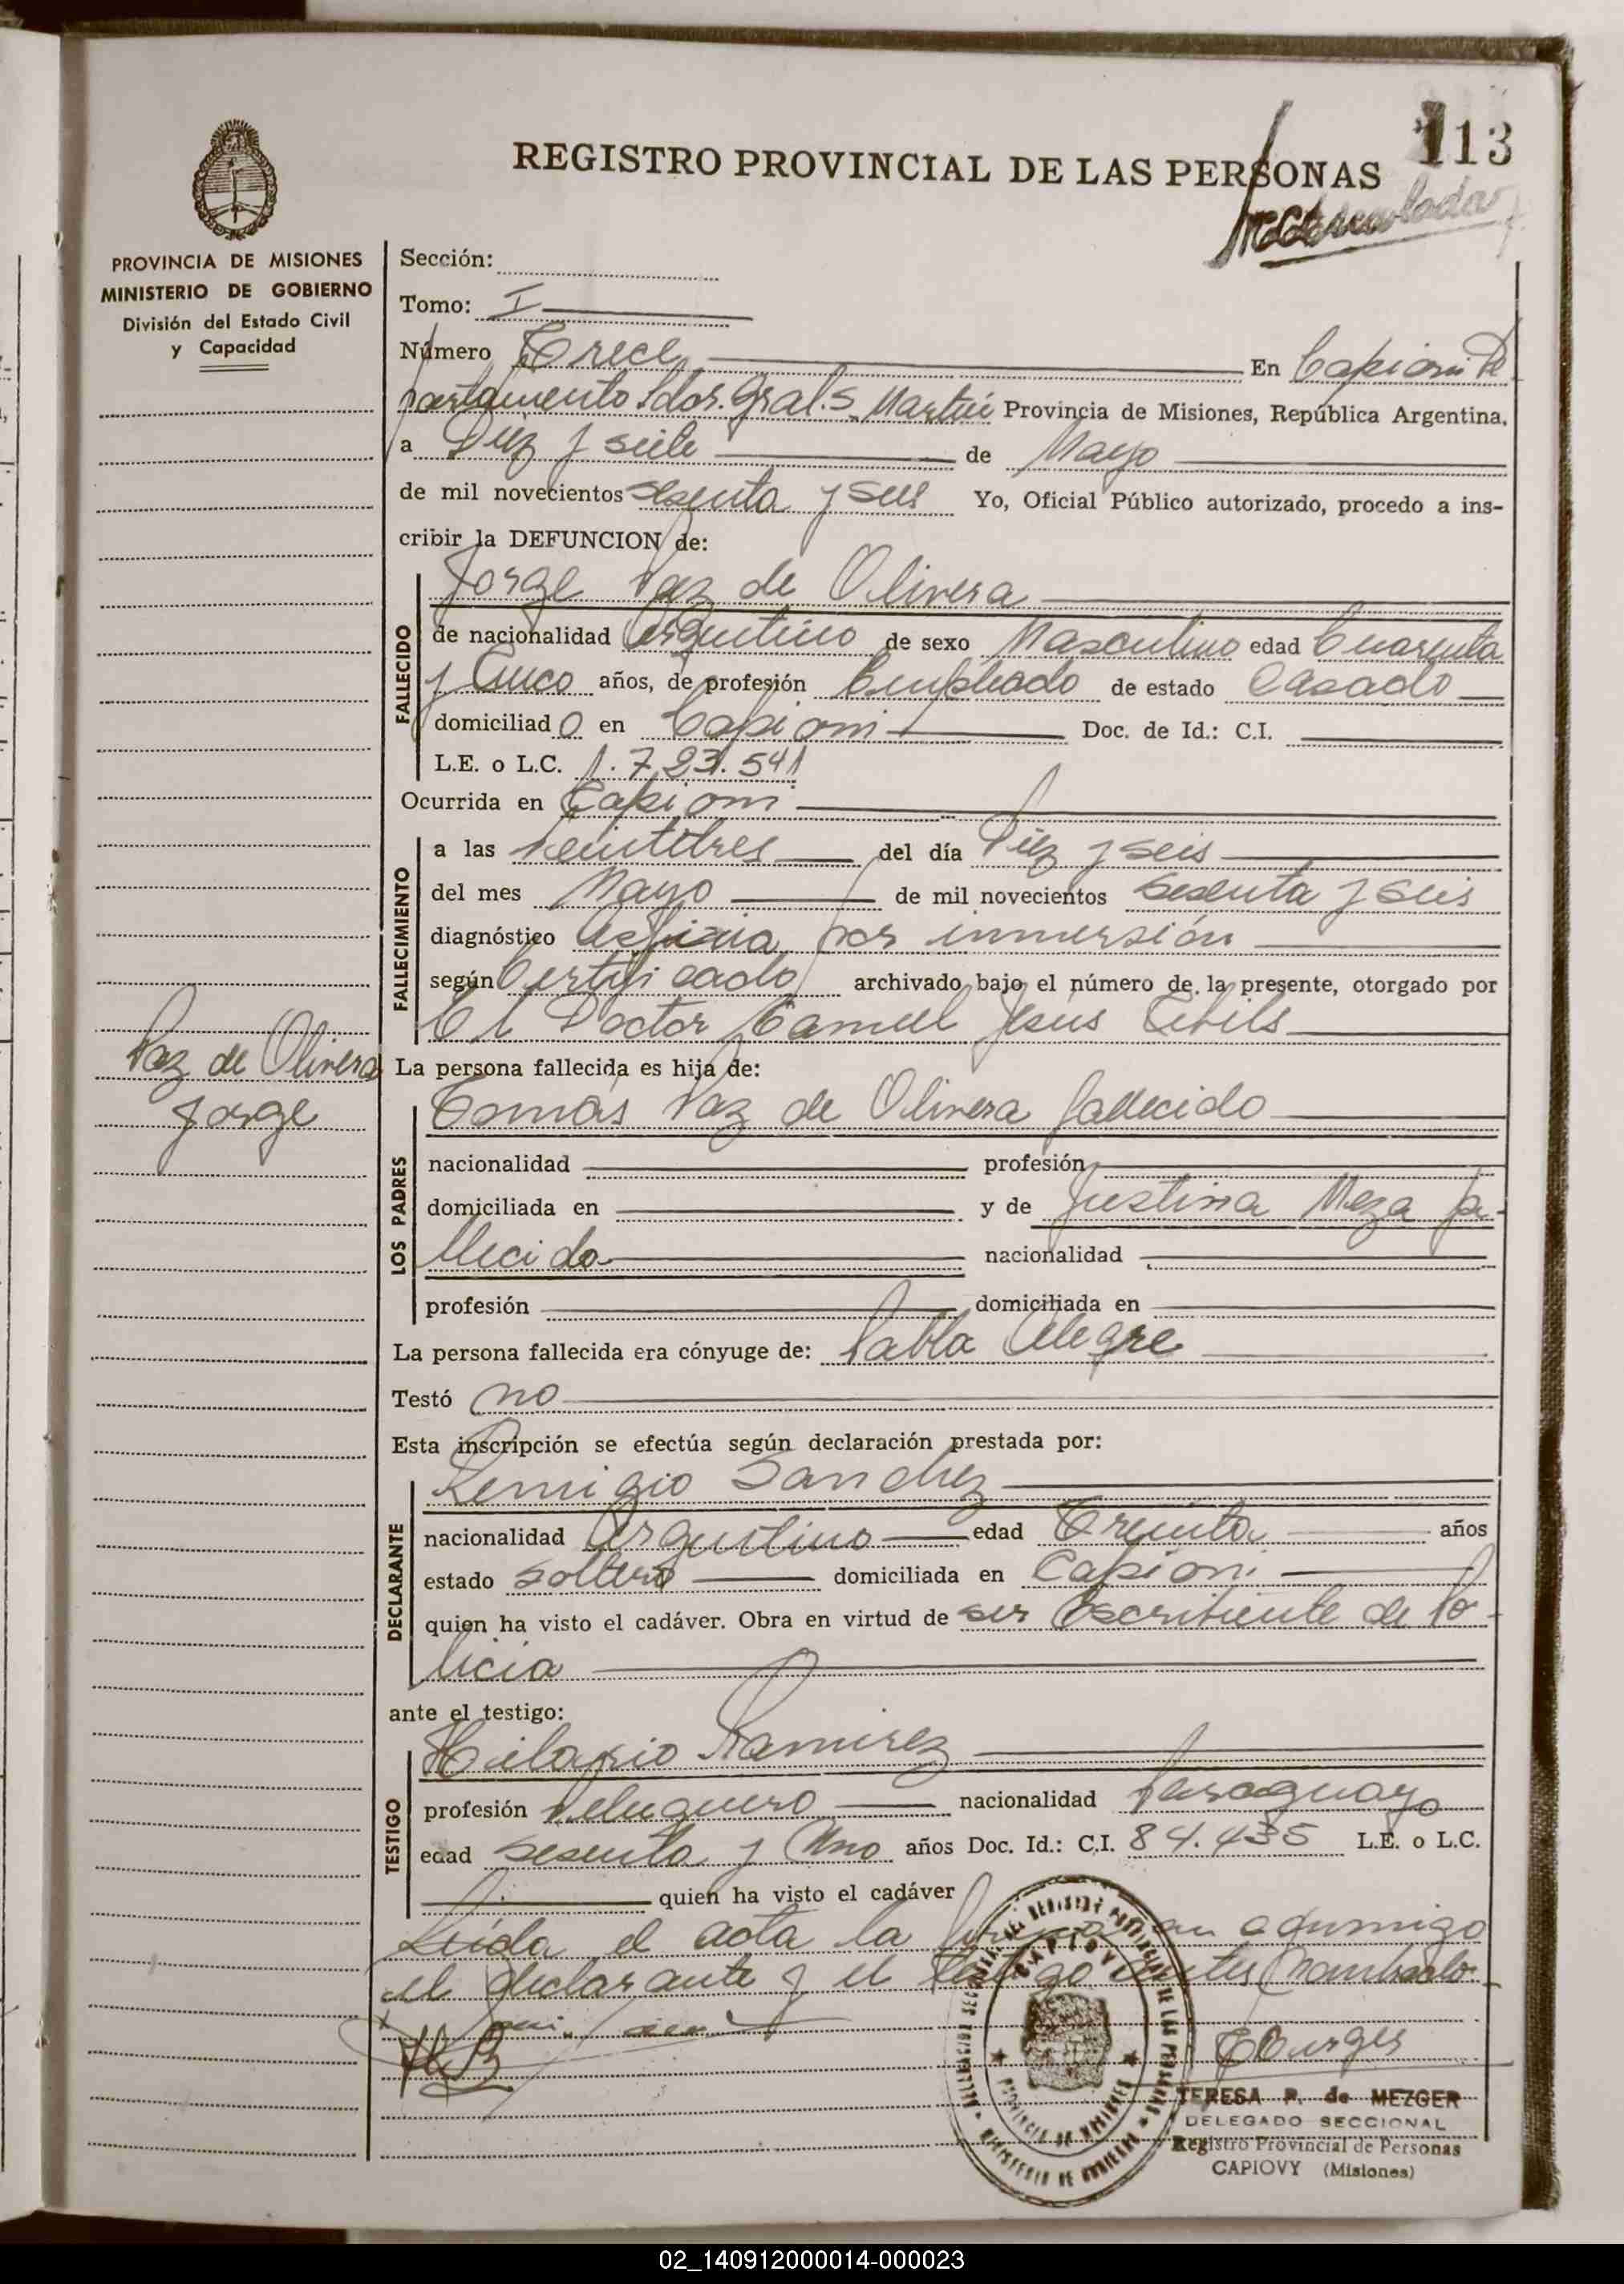 113
REGISTRO PROVINCIAL DE LAS PERSONAS
PROVINCIA DE MISIONES
MINISTERIO DE GOBIERNO
División del Estado Civil
y Capacidad
Sección:
Tomo: I
Número Trece En Capiovi De
partamento Ldor. Gral. S. Martín Provincia de Misiones, República Argentina,
a Diez y siete de Mayo
de mil novecientos sesenta y seis Yo, Oficial Público autorizado, procedo a ins-
cribir la DEFUNCION de:
Jorge Vaz de Olivera
FALLECIDO
de nacionalidad Argentino de sexo Masculino edad Cuarenta
y Cinco años, de profesión Empleado de estado Casado
domiciliado en Capiovi Doc. de Id.: C.I.
L.E. o L.C. 1.723.541
Ocurrida en Capiovi
FALLECIMIENTO
a las Veintitres del día Diez y seis
del mes Mayo de mil novecientos Sesenta y seis
diagnóstico Asfixia por inmersión
según Certificado archivado bajo el número de la presente, otorgado por
El Doctor Camuel Jesús
Vaz de Olivera
Jorge
La persona fallecida es hija de:
Tomás Vaz de Olivera fallecido
LOS PADRES
nacionalidad profesión
domiciliada en y de Justina Meza fa-
llecida nacionalidad
profesión domiciliada en
La persona fallecida era cónyuge de: Pabla Alegre
Testó no
Esta inscripción se efectúa según declaración prestada por:
Remigio Sanchez
DECLARANTE
nacionalidad Argentino edad Treinta años
estado soltero domiciliada en Capiovi
quien ha visto el cadáver. Obra en virtud de ser Escribiente de Po-
licia
ante el testigo:
Hilario Ramirez
TESTIGO
profesión Peluquero nacionalidad Paraguayo
edad sesenta y Uno años Doc. Id.: C.I. 84.435 L.E. o L.C.
quien ha visto el cadáver
Leida el acta la firman conmigo
el declarante y el testigo antes nombrado
TERESA P. de MEZGER
DELEGADO SECCIONAL
Registro Provincial de Personas
CAPIOVY (Misiones)
02_140912000014-000023